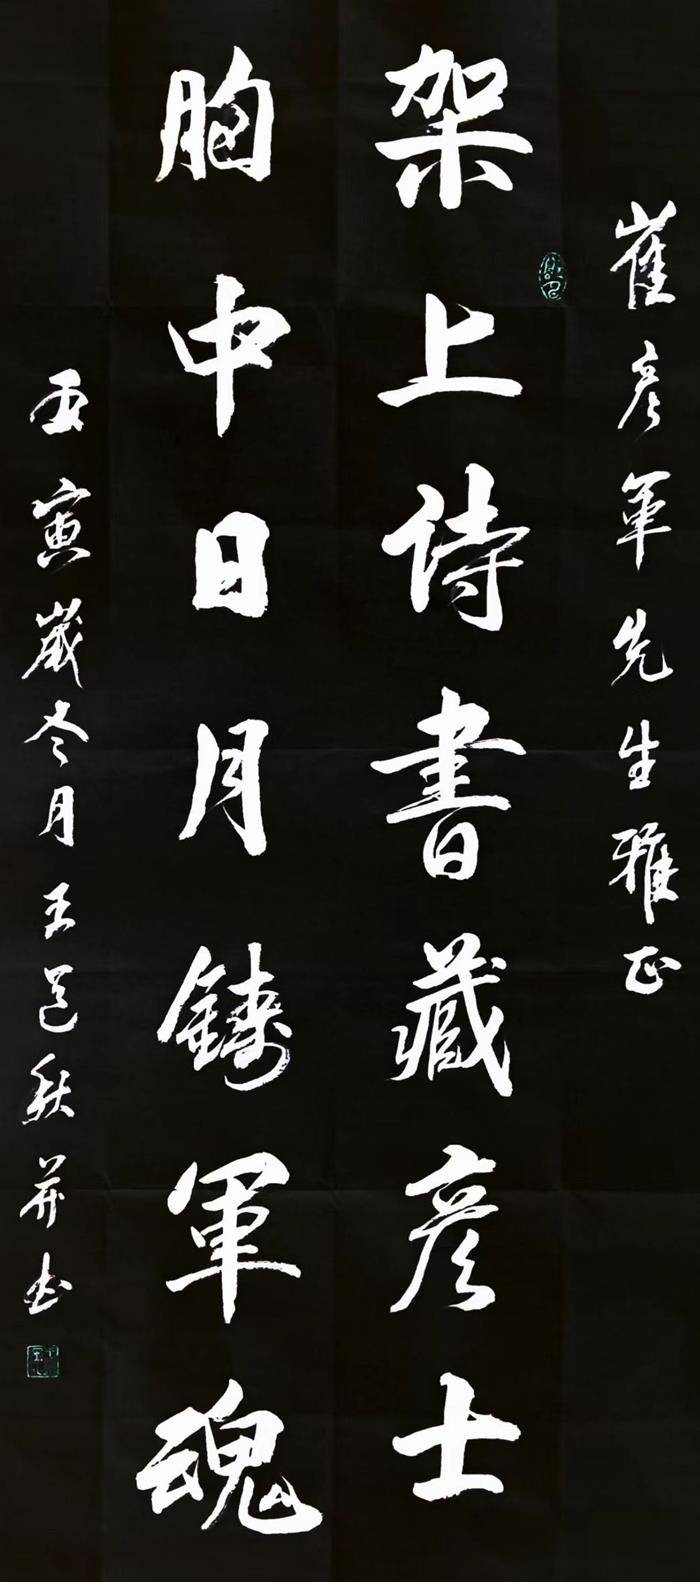 崔彦軍先生雅正
架上侍書藏彦士
胸中日月鑄軍魂
壬寅歲冬月王道秋并书